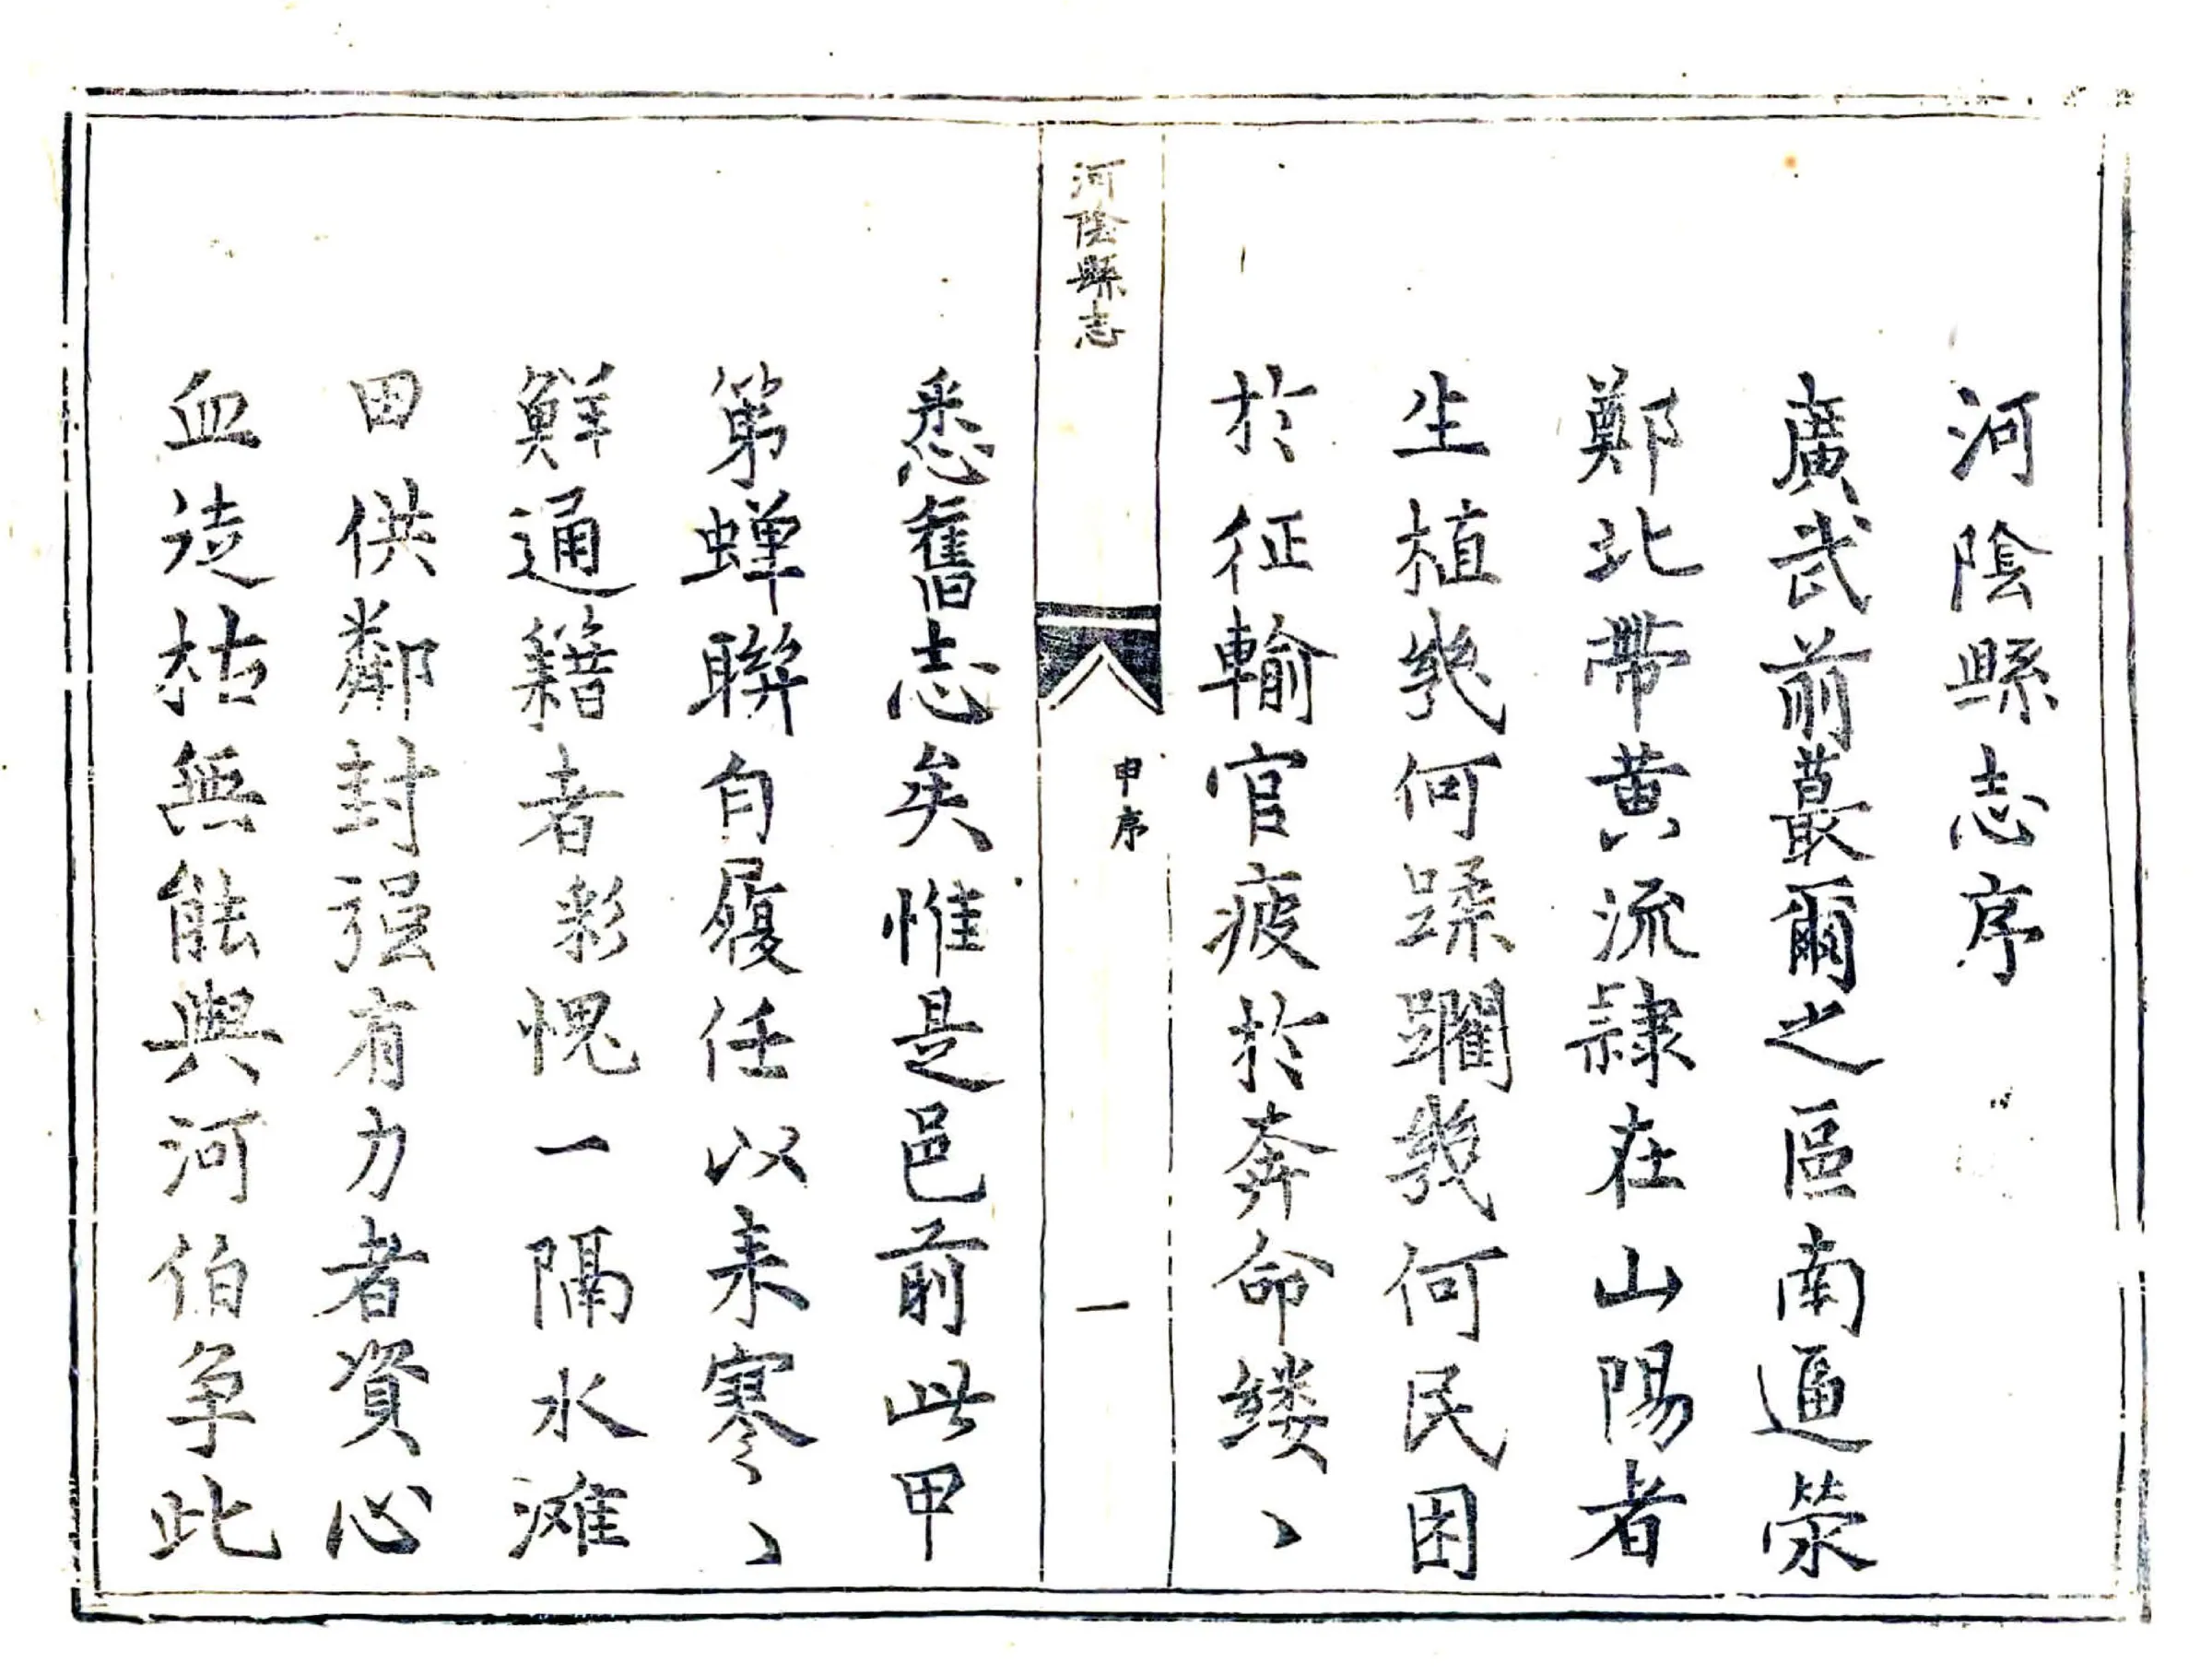 河陰縣志序
廣武前蕞爾之區南逼滎
鄭北帶黄流隷在山陽者
生植幾何蹂躙幾何民困
於征輸官疲於奔命縷〻
河陰縣志
申序
一
悉舊志矣惟是邑前此甲
第蟬聯自履任以来寥〻
鮮通籍者彩愧一隔水滩
田供鄰封强有力者資心
血徒枯無能與河伯争此